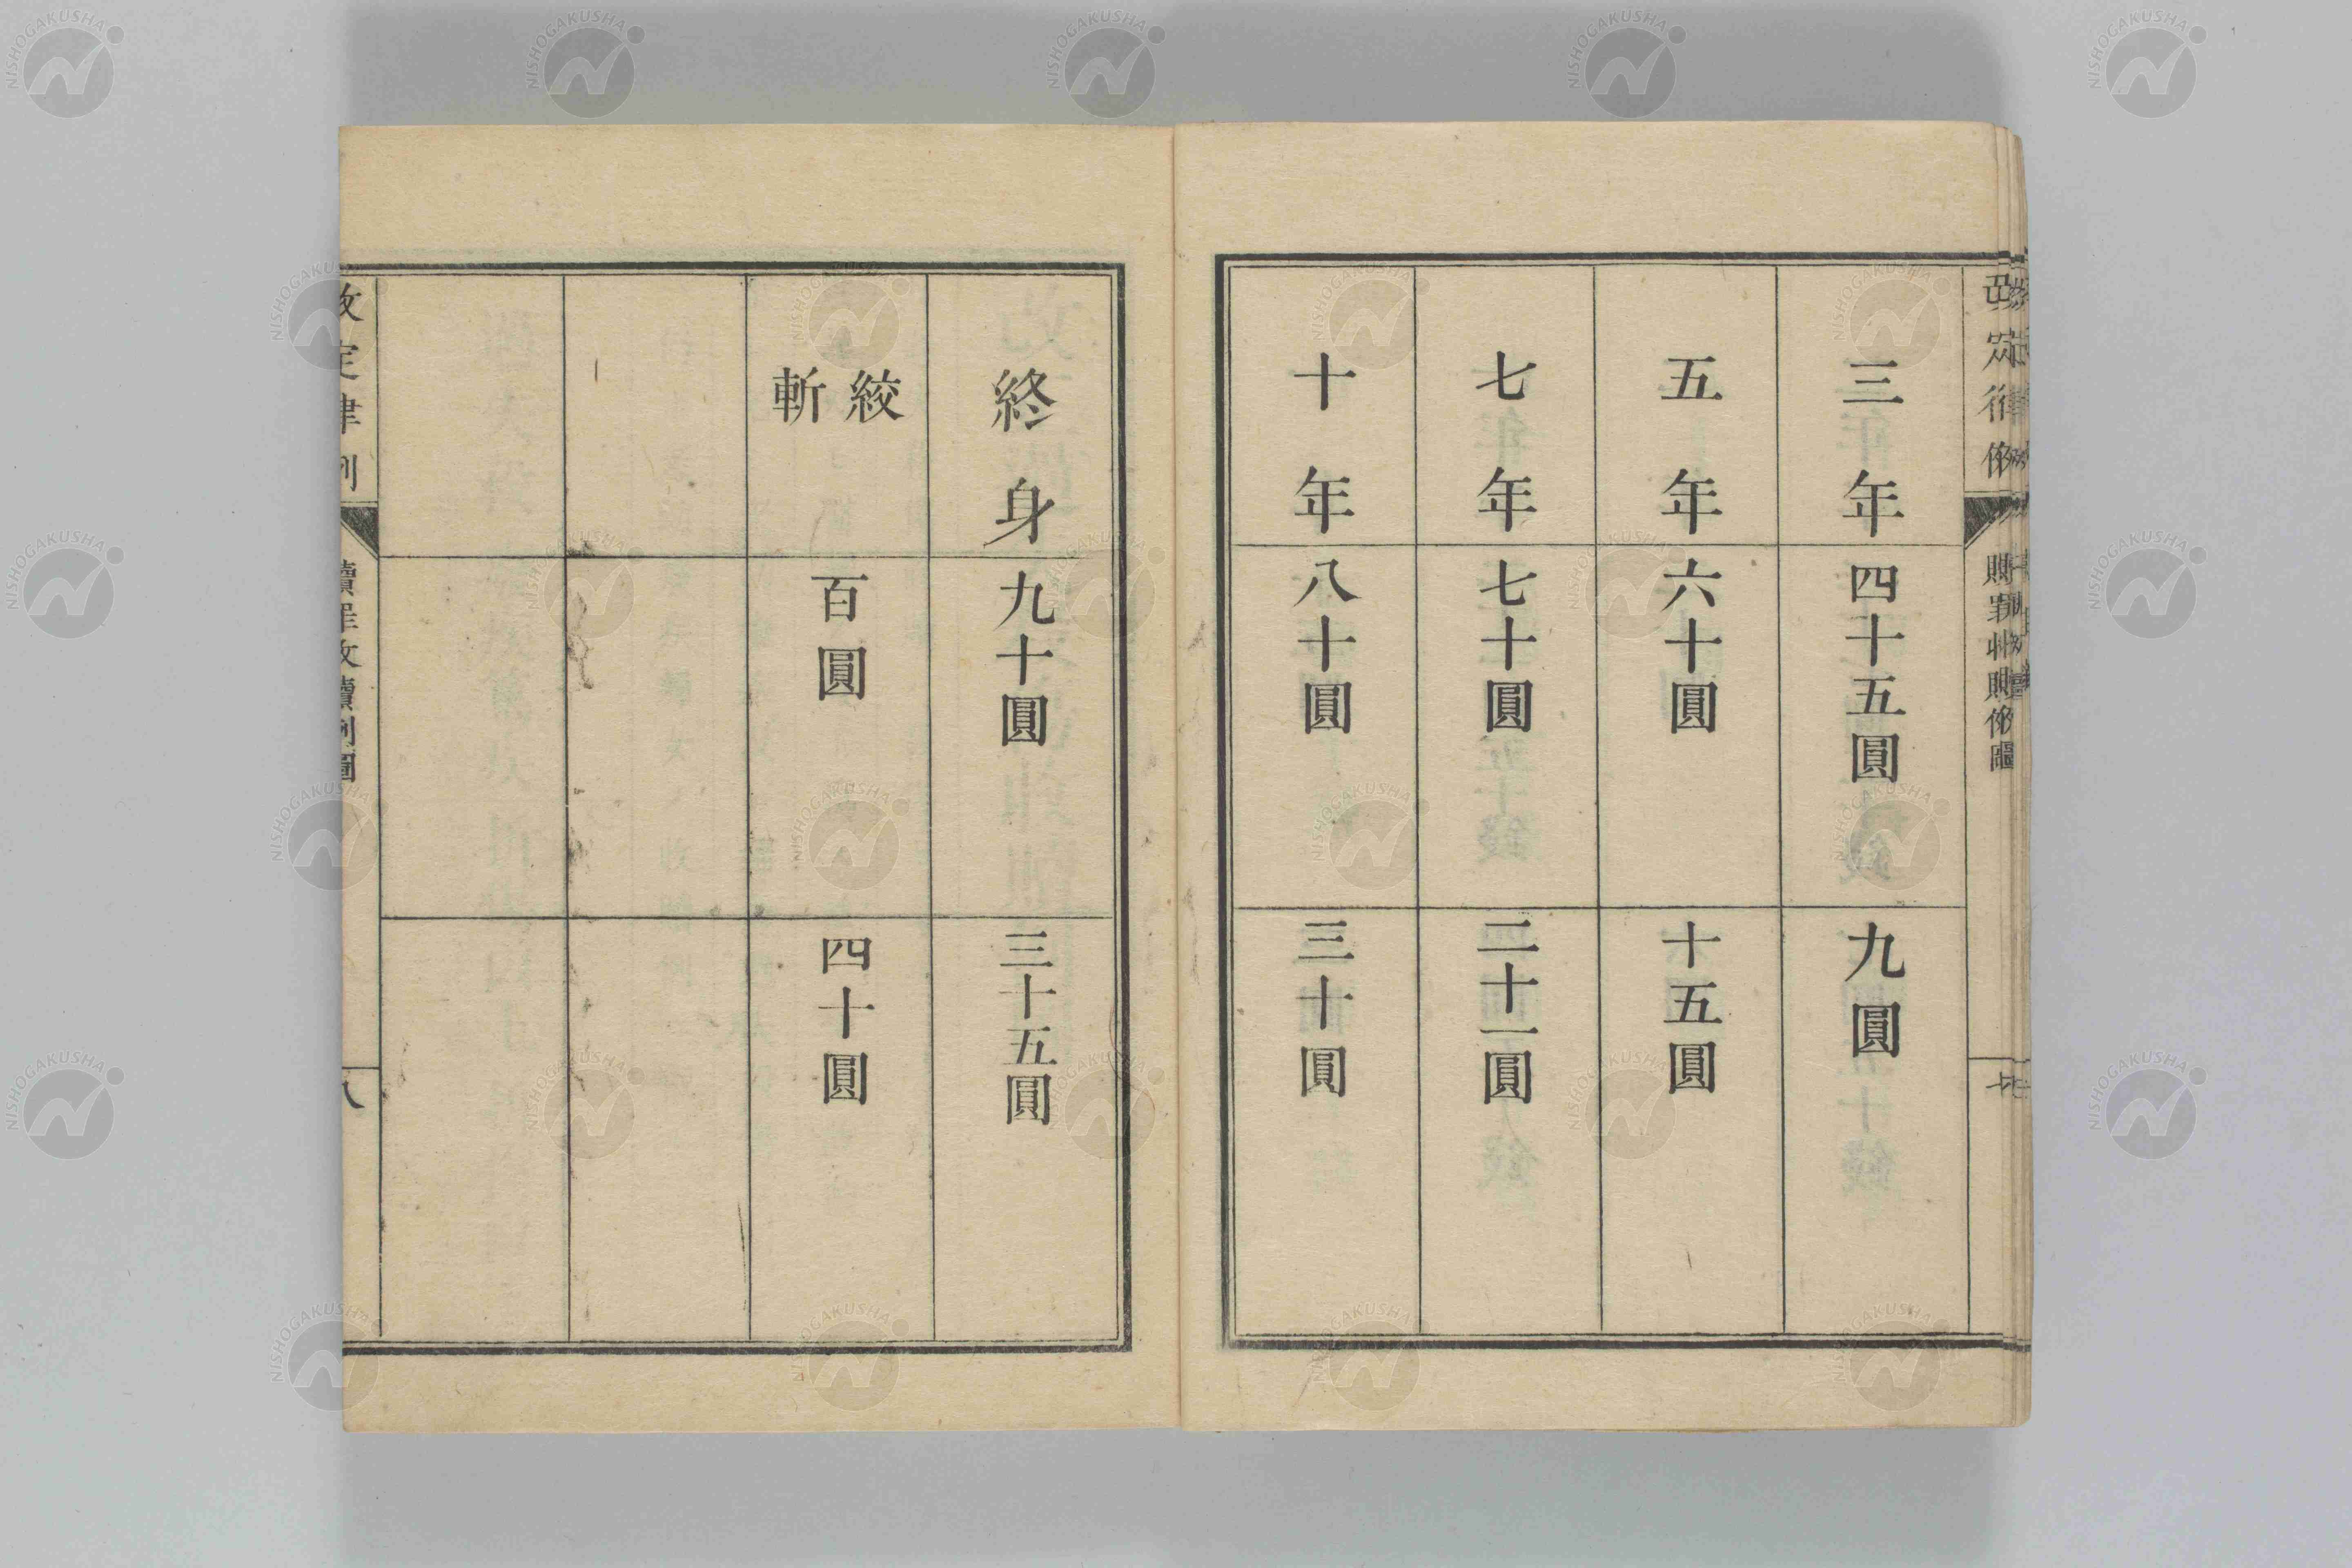 三年 四十五圓 九圓
五年 六十圓 十五圓
七年 七十圓 二十一圓
十年 八十圓 三十圓
終身 九十圓 三十五圓
絞 斬 百圓 四十圓
改定律例
贖罪收贖例圖
八
NISHOGAKUSHA